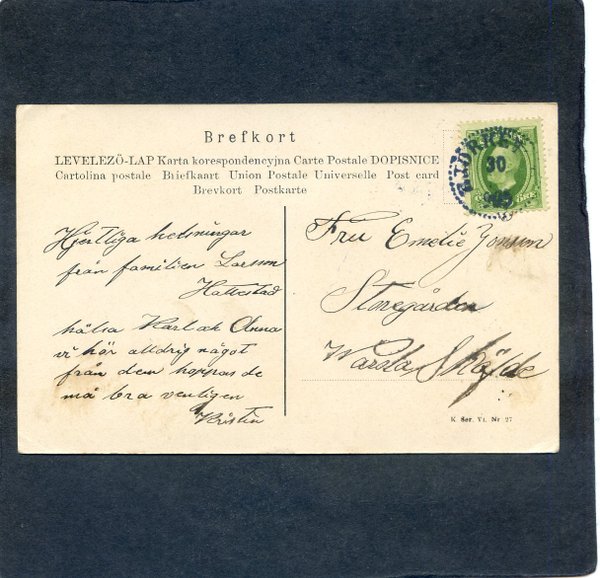 Brefkort
LEVELEZŐ-LAP Karta korespondencyjna Carte Postale DOPISNICE
Cartolina postale Briefkaart Union Postale Universelle Post card
Brevkort Postkarte
30
Hjertliga helsningar
från familien Larsson
Hattestad
hälsa Karl och Anna
vi hör alldrig något
från dem hoppas de
må bra ventigen
Kristin
Fru Emelie Jonson
Storegården
Warsla, Sköfde
K Ser. VI. Nr 27